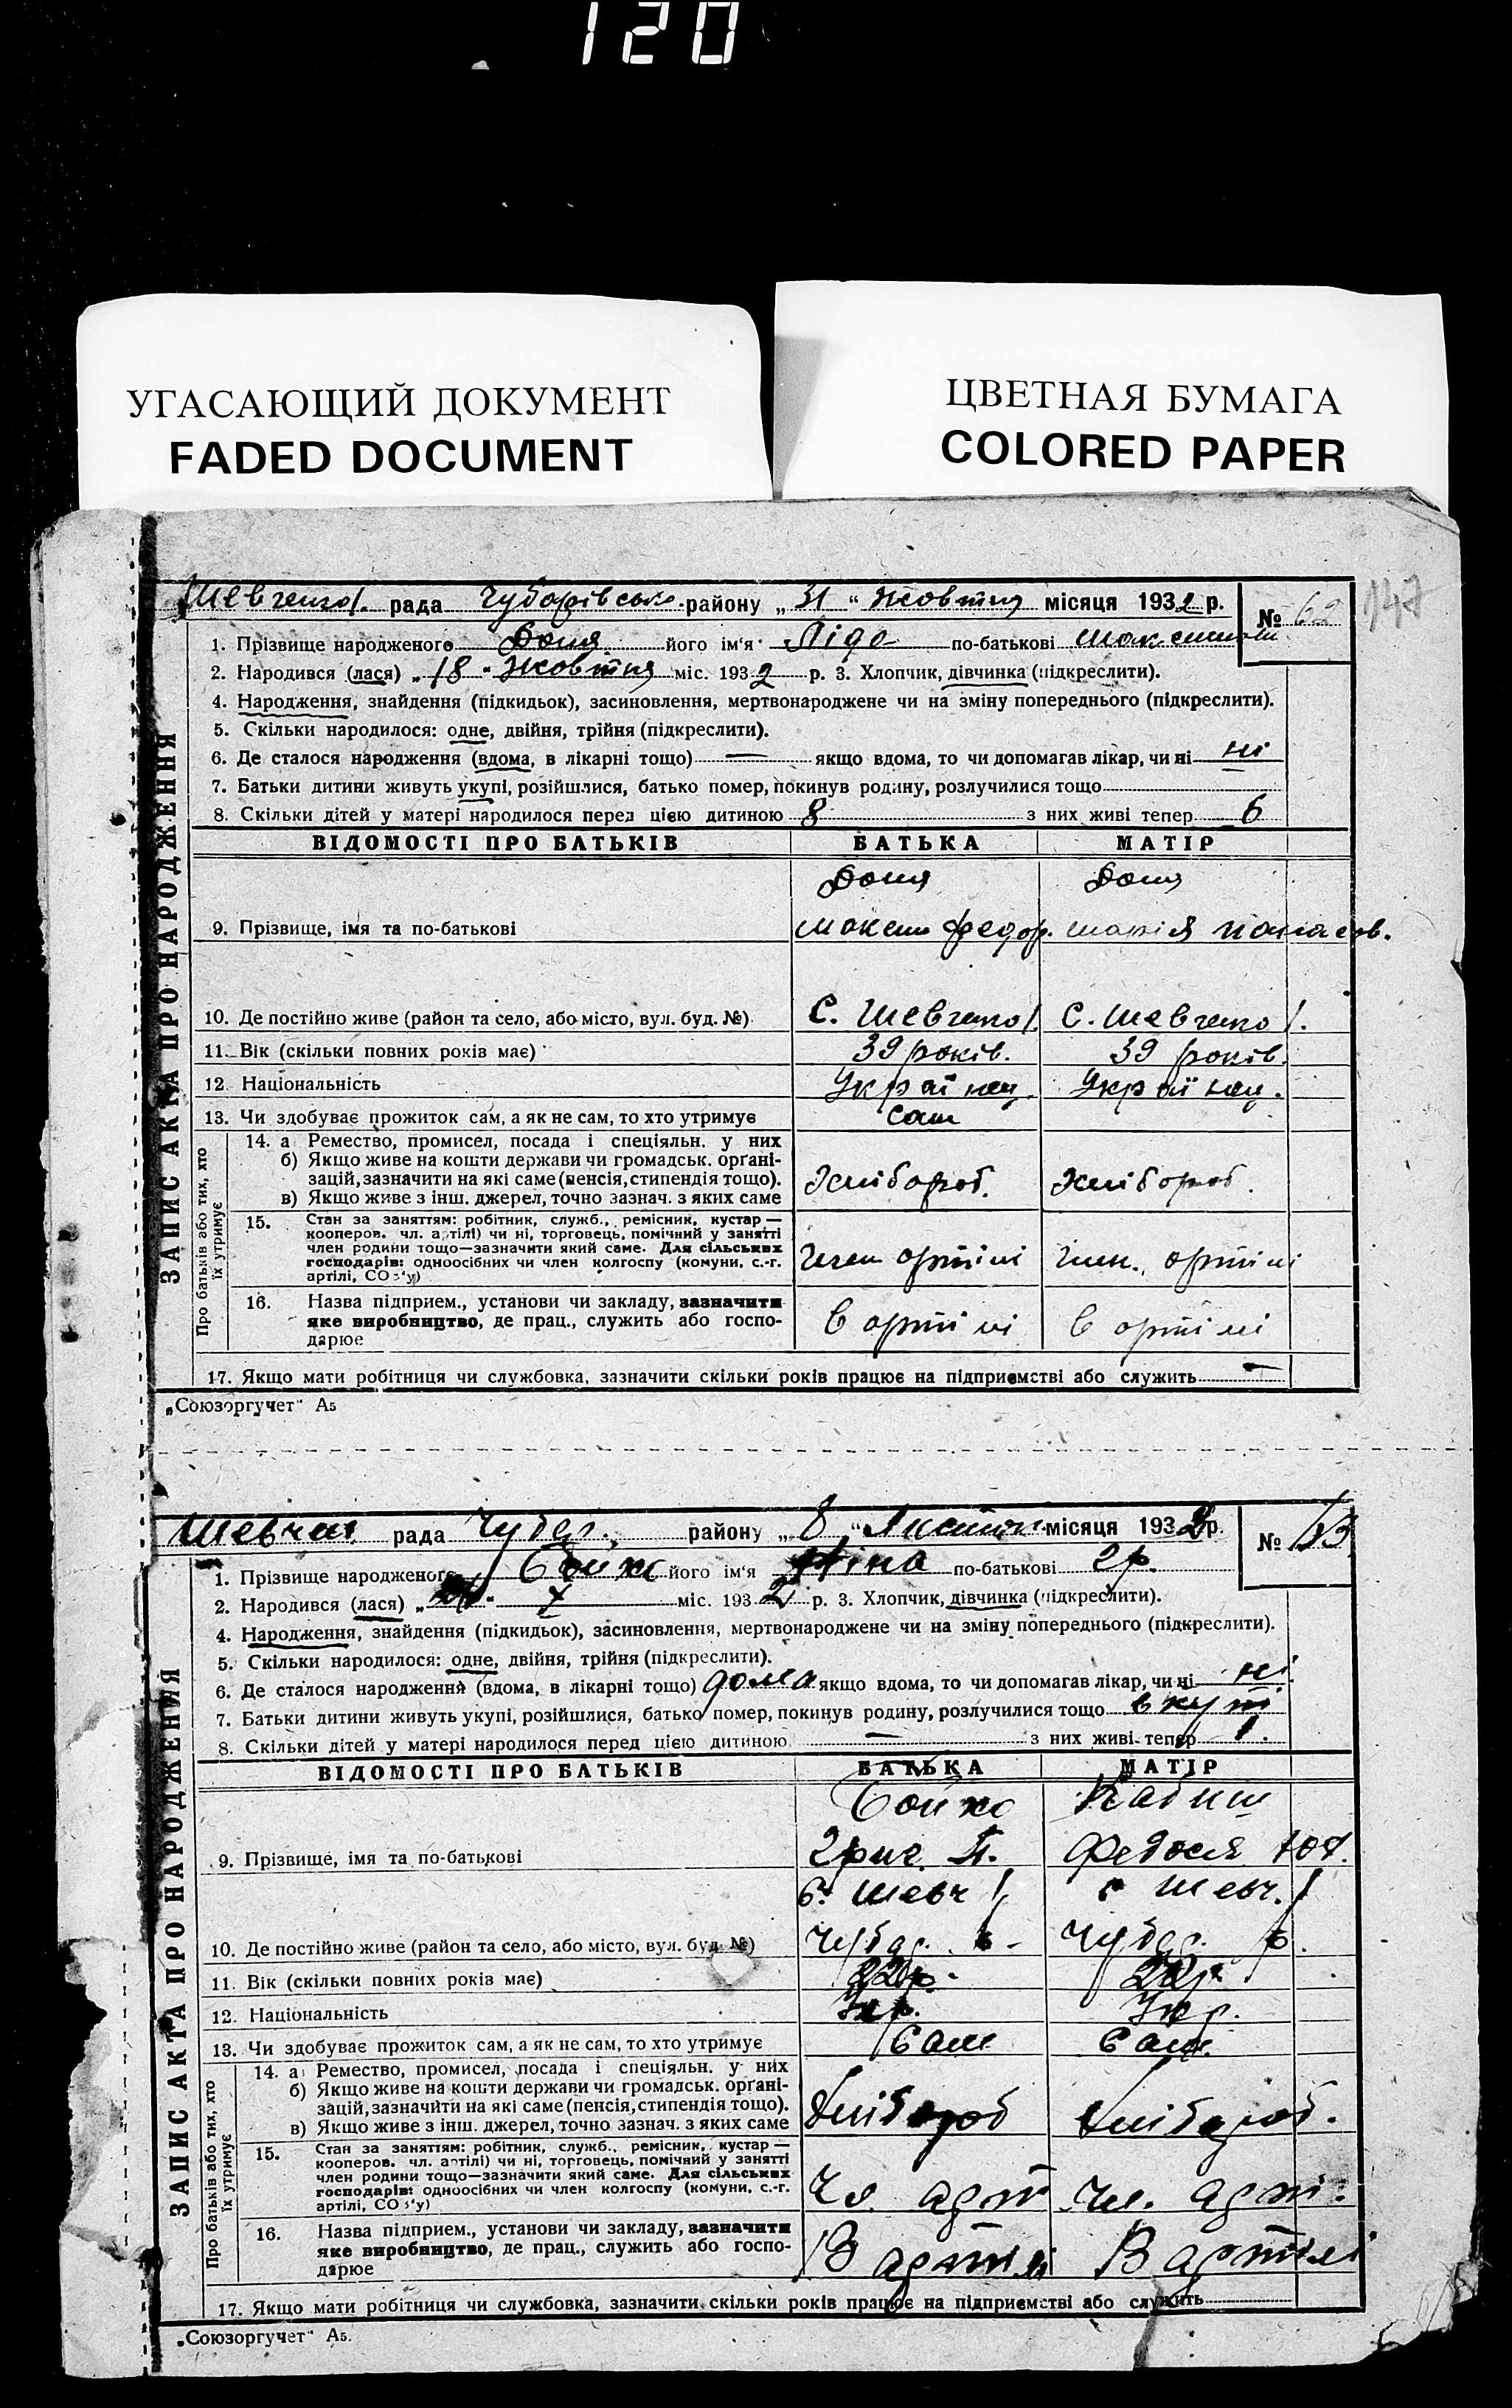 120
УГАСАЮЩИЙ ДОКУМЕНТ
FADED DOCUMENT
ЦВЕТНАЯ БУМАГА
COLORED PAPER
147
ЗАПИС АКТА ПРО НАРОДЖЕННЯ
Шевченко 1. рада Чубарівсько району „31“ Жовтня місяця 1932 р. № 62
1. Прізвище народженого Доля його ім'я Ліда по-батькові
2. Народився (лася) „18“ Жовтня міс. 1932 р. 3. Хлопчик, дівчинка (підкреслити).
4. Народження, знайдення (підкидьок), засиновлення, мертвонароджене чи на зміну попереднього (підкреслити).
5. Скільки народилося: одне, двійня, трійня (підкреслити).
6. Де сталося народження (вдома, в лікарні тощо) — якщо вдома, то чи допомагав лікар, чи ні ні
7. Батьки дитини живуть укупі, розійшлися, батько помер, покинув родину, розлучилися тощо
8. Скільки дітей у матері народилося перед цією дитиною 8 з них живі тепер 6
ВІДОМОСТІ ПРО БАТЬКІВ БАТЬКА МАТІР
Доля Доля
9. Прізвище, імя та по-батькові Максим Федор. Марія Панасов.
10. Де постійно живе (район та село, або місто, вул. буд. №) С. Шевченко 1. С. Шевченко 1.
11. Вік (скільки повних років має) 39 років. 39 років.
12. Національність Українц. Українц.
13. Чи здобуває прожиток сам, а як не сам, то хто утримує сам
Про батьків або тих, хто їх утримує
14. а Ремество, промисел, посада і спеціяльн. у них
б) Якщо живе на кошти держави чи громадськ. орґані-
зацій, зазначити на які саме (пенсія, стипендія тощо). Хліброб. Хліброб.
в) Якщо живе з інш. джерел, точно зазнач. з яких саме
15. Стан за заняттям: робітник, служб., ремісник, кустар —
кооперов. чл. артілі) чи ні, торговець, помічний у занятті
член родини тощо—зазначити який саме. Для сільських
господарів: одноосібних чи член колгоспу (комуни, с.-г. член артілі член. артілі
артілі, СОЗ'у)
16. Назва підприєм., установи чи закладу, зазначити
яке виробництво, де прац., служить або госпо- В артілі В артілі
дарює
17. Якщо мати робітниця чи службовка, зазначити скільки років працює на підприємстві або служить —
„Союзоргучет“ А5
ЗАПИС АКТА ПРО НАРОДЖЕННЯ
Шевчен рада Чубар. району „8“ Листоп місяця 1932 р. № 63
1. Прізвище народженого Бойко його ім'я Ніна по-батькові Гр.
2. Народився (лася) „ “ міс. 1932 р. 3. Хлопчик, дівчинка (підкреслити).
4. Народження, знайдення (підкидьок), засиновлення, мертвонароджене чи на зміну попереднього (підкреслити).
5. Скільки народилося: одне, двійня, трійня (підкреслити).
6. Де сталося народження (вдома, в лікарні тощо) дома якщо вдома, то чи допомагав лікар, чи ні ні
7. Батьки дитини живуть укупі, розійшлися, батько помер, покинув родину, розлучилися тощо вкупі
8. Скільки дітей у матері народилося перед цією дитиною — з них живі тепер 1.
ВІДОМОСТІ ПРО БАТЬКІВ БАТЬКА МАТІР
Бойко Бабиш
9. Прізвище, імя та по-батькові Григ. П. Федося
с. Шевч 1 с Шевч. 1
10. Де постійно живе (район та село, або місто, вул. буд. №) Чубар. р. Чубар. р.
11. Вік (скільки повних років має) 22р. 22р.
12. Національність Укр. Укр.
13. Чи здобуває прожиток сам, а як не сам, то хто утримує Сам Сам.
Про батьків або тих, хто їх утримує
14. а Ремество, промисел, посада і спеціяльн. у них
б) Якщо живе на кошти держави чи громадськ. орґані-
зацій, зазначити на які саме (пенсія, стипендія тощо). Хлібороб Хлібороб.
в) Якщо живе з інш. джерел, точно зазнач. з яких саме
15. Стан за заняттям: робітник, служб., ремісник, кустар —
кооперов. чл. артілі) чи ні, торговець, помічний у занятті
член родини тощо—зазначити який саме. Для сільських
господарів: одноосібних чи член колгоспу (комуни, с.-г. Чл. арт Чл. арт.
артілі, СОЗ'у)
16. Назва підприєм., установи чи закладу, зазначити
яке виробництво, де прац., служить або госпо- В артілі В артілі
дарює
17. Якщо мати робітниця чи службовка, зазначити скільки років працює на підприємстві або служить
„Союзоргучет“ А5.